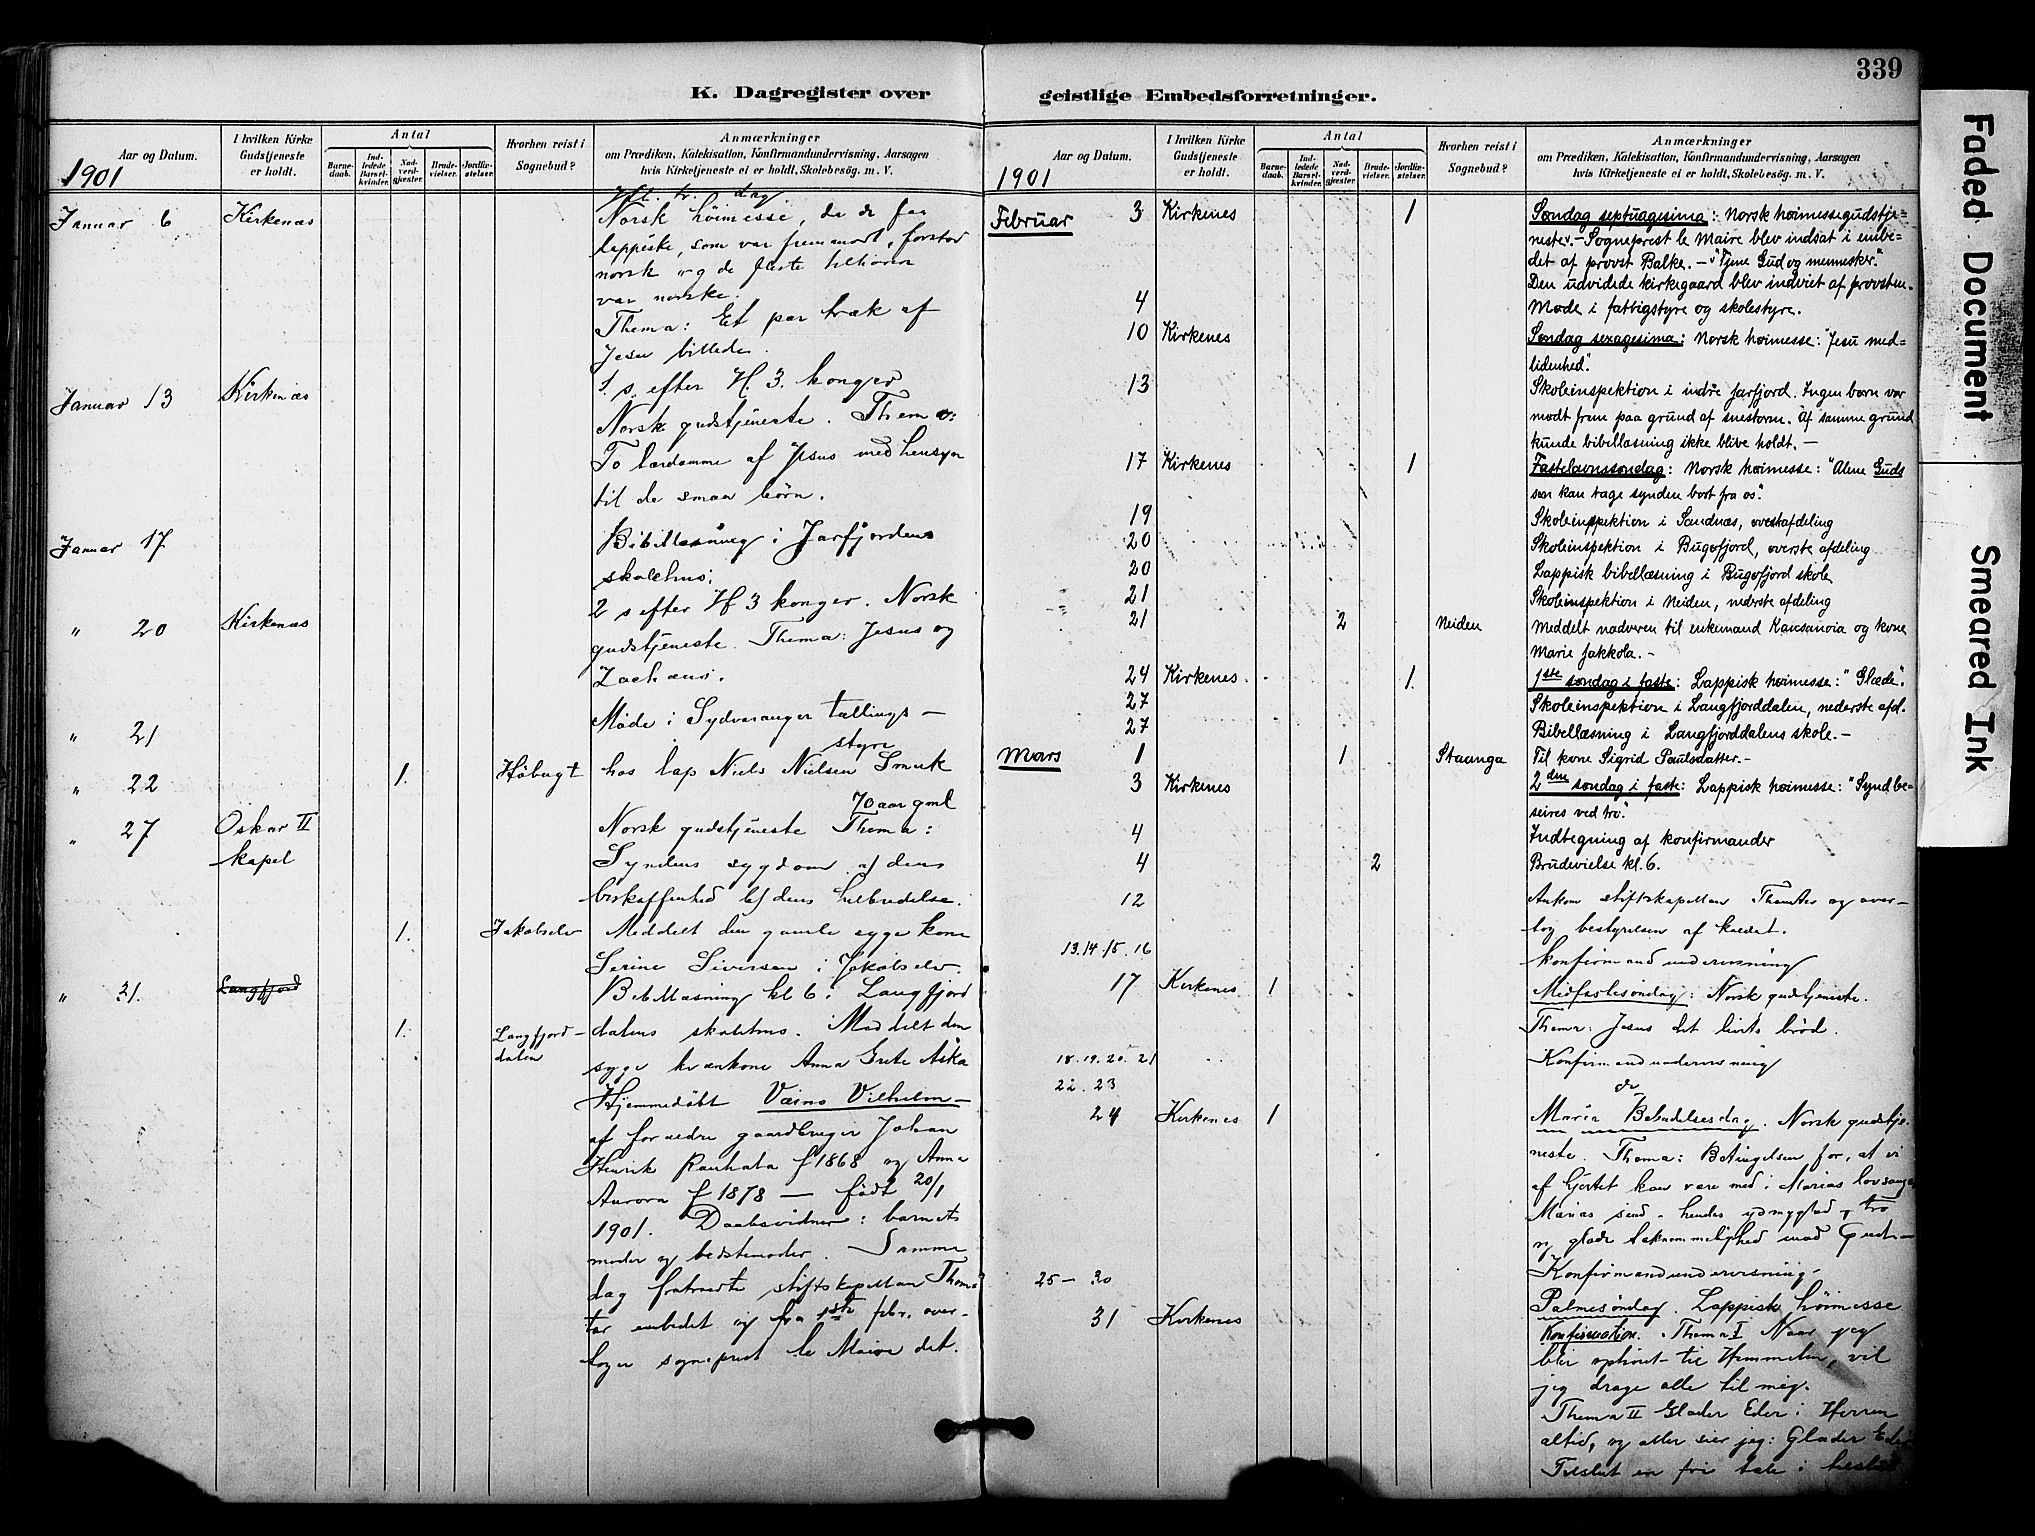 339
K. Dagregister over
geistlige Embedsforretninger.
Aar og Datum.
I hvilken Kirke
Gudstjeneste
er holdt.
Antal
Barne-
daab.
Ind-
ledede
Barsel-
kvinder.
Nad-
verd-
gjæster
Brude-
vielser.
Jordfæ-
stelser.
Hvorhen reist i
Sognebud?
Anmærkninger
om Prædiken, Katekisation, Konfirmandundervisning, Aarsagen
hvis Kirketjeneste ei er holdt, Skolebesøg. m. V.
1901
Januar 6 Kirkenæs
Norsk höimesse, da de faa
lappiske, som var fremmødt, forstod
norsk og de fleste tilhørere
var norske.
Thema: Et par træk af
Jesu billede.
Januar 13 Kirkenæs 1 s. efter H. 3. konger
Norsk gudstjeneste. Thema:
To lærdomme af Jesus med hensyn
til de smaa børn.
Januar 17 Bibellæsning i Jarfjordens
skolehus.
" 20 Kirkenæs 2 s efter H 3 konger. Norsk
gudstjeneste. Thema: Jesus og
Zachæus.
" 21 Møde i Sydvaranger tællings-
styre
" 22 1. Höbugt hos lap Niels Nielsen Smuk
70 aar gml
" 27 Oskar II
kapel
Norsk gudstjeneste Thema:
Syndens sygdom a) dens
beskaffenhed b) dens helbredelse.
1. Jakobselv Meddelt den gamle syge kone
Serine Siversen i Jakobselv.
" 31. Langfjord Bibellæsning kl 6 i Langfjord
1. Langfjord-
dalen
dalens skolehus. Meddelt den
syge kvænkone Anna Grete Aska
Hjemmedöbt Væino Vilhelm -
af forældre gaardbruger Johan
Henrik Rauhala f 1868 og Anna
Aurora f 1878 - født 20/1
1901. Daabsvidner: barnets
moder og bedstemoder. Samme
dag fratraadte stiftskapellan Thoma
ter embedet og fra 1ste febr. over-
toger sogneprest le Maire det.
Aar og Datum.
I hvilken Kirke
Gudstjeneste
er holdt.
Antal
Barne-
daab.
Ind-
ledede
Barsel-
kvinder.
Nad-
verd-
gjæster
Brude-
vielser.
Jordfæ-
stelser.
Hvorhen reist i
Sognebud?
Anmærkninger
om Prædiken, Katekisation, Konfirmandundervisning, Aarsagen
hvis Kirketjeneste ei er holdt, Skolebesøg. m. V.
1901
Februar 3 Kirkenes 1 Søndag septuagesima: Norsk høimessegudstje-
neste. - Sogneprest le Maire blev indsat i embe-
det af provst Balke. - "Tjene Gud og mennesker."
Den udvidede kirkegaard blev indviet af provsten.
4 Møde i fattigstyre og skolestyre.
10 Kirkenes Søndag sexagesima: Norsk høimesse: "Jesu med-
lidenhed".
13 Skoleinspektion i indre Jarfjord. Ingen børn var
mødt frem paa grund af snestorm. Af samme grund
kunde bibellæsning ikke blive holdt. -
17 Kirkenes 1 Fastelavnssøndag: Norsk høimesse: "Alene Guds
søn kan tage synden bort fra os".
19 Skoleinspektion i Sandnæs, øvestafdeling
20 Skoleinspektion i Bugøfjord, øverste afdeling
20 Lappisk bibellæsning i Bugøfjord skole
21 Skoleinspektion i Neiden, nederste afdeling
21 2 Neiden Meddelt nadveren til enkemand Kansanoia og kone
Marie Jakkola. -
24 Kirkenes 1 1ste søndag i faste: Lappisk høimesse: "Glæde".
27 Skoleinspektion i Langfjorddalen, nederste afd.
27 Bibellæsning i Langfjorddalens skole. -
Mars 1 1 Staanga Til kone Sigrid Paulsdatter. -
3 Kirkenes 2den søndag i faste: Lappisk høimesse: "Synd be-
seires ved tro".
4 Indtegning af konfirmander
4 2 Brudevielse kl. 6.
12 Ankom stiftskapellan Thomter og over-
tog bestyrelsen af kaldet.
13.14.15.16 Konfirmandundervisning
17 Kirkenes 1 Midfastesöndag: Norsk gudstjeneste.
Thema: Jesus det livets bröd.
18.19.20.21 Konfirmandundervisning
22.23 do
24 Kirkenes 1 Maria Bebudelsesdag. Norsk gudstje-
neste. Thema: Betingelsen for, at vi
af hjertet kan være med i Marias lovsang
Marias sind - hendes ydmyghed, tro
og glade taknemmelighed mod Gud. -
25 - 30 Konfirmandundervisning.
31 Kirkenes Palmesöndag. Lappisk höimesse
Konfirmation. Thema I Naar jeg
blir ophöiet til Himmelen, vil
jeg drage alle til mig.
Thema II Glæder Eder i Herren
altid, og atter sier jeg: Glæder Eder
Tilslut en fri tale i
Faded Document
Smeared Ink